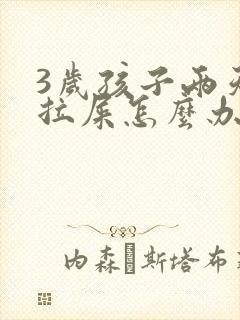 3歲孩子兩天
拉屎怎麼办
内森 斯塔布